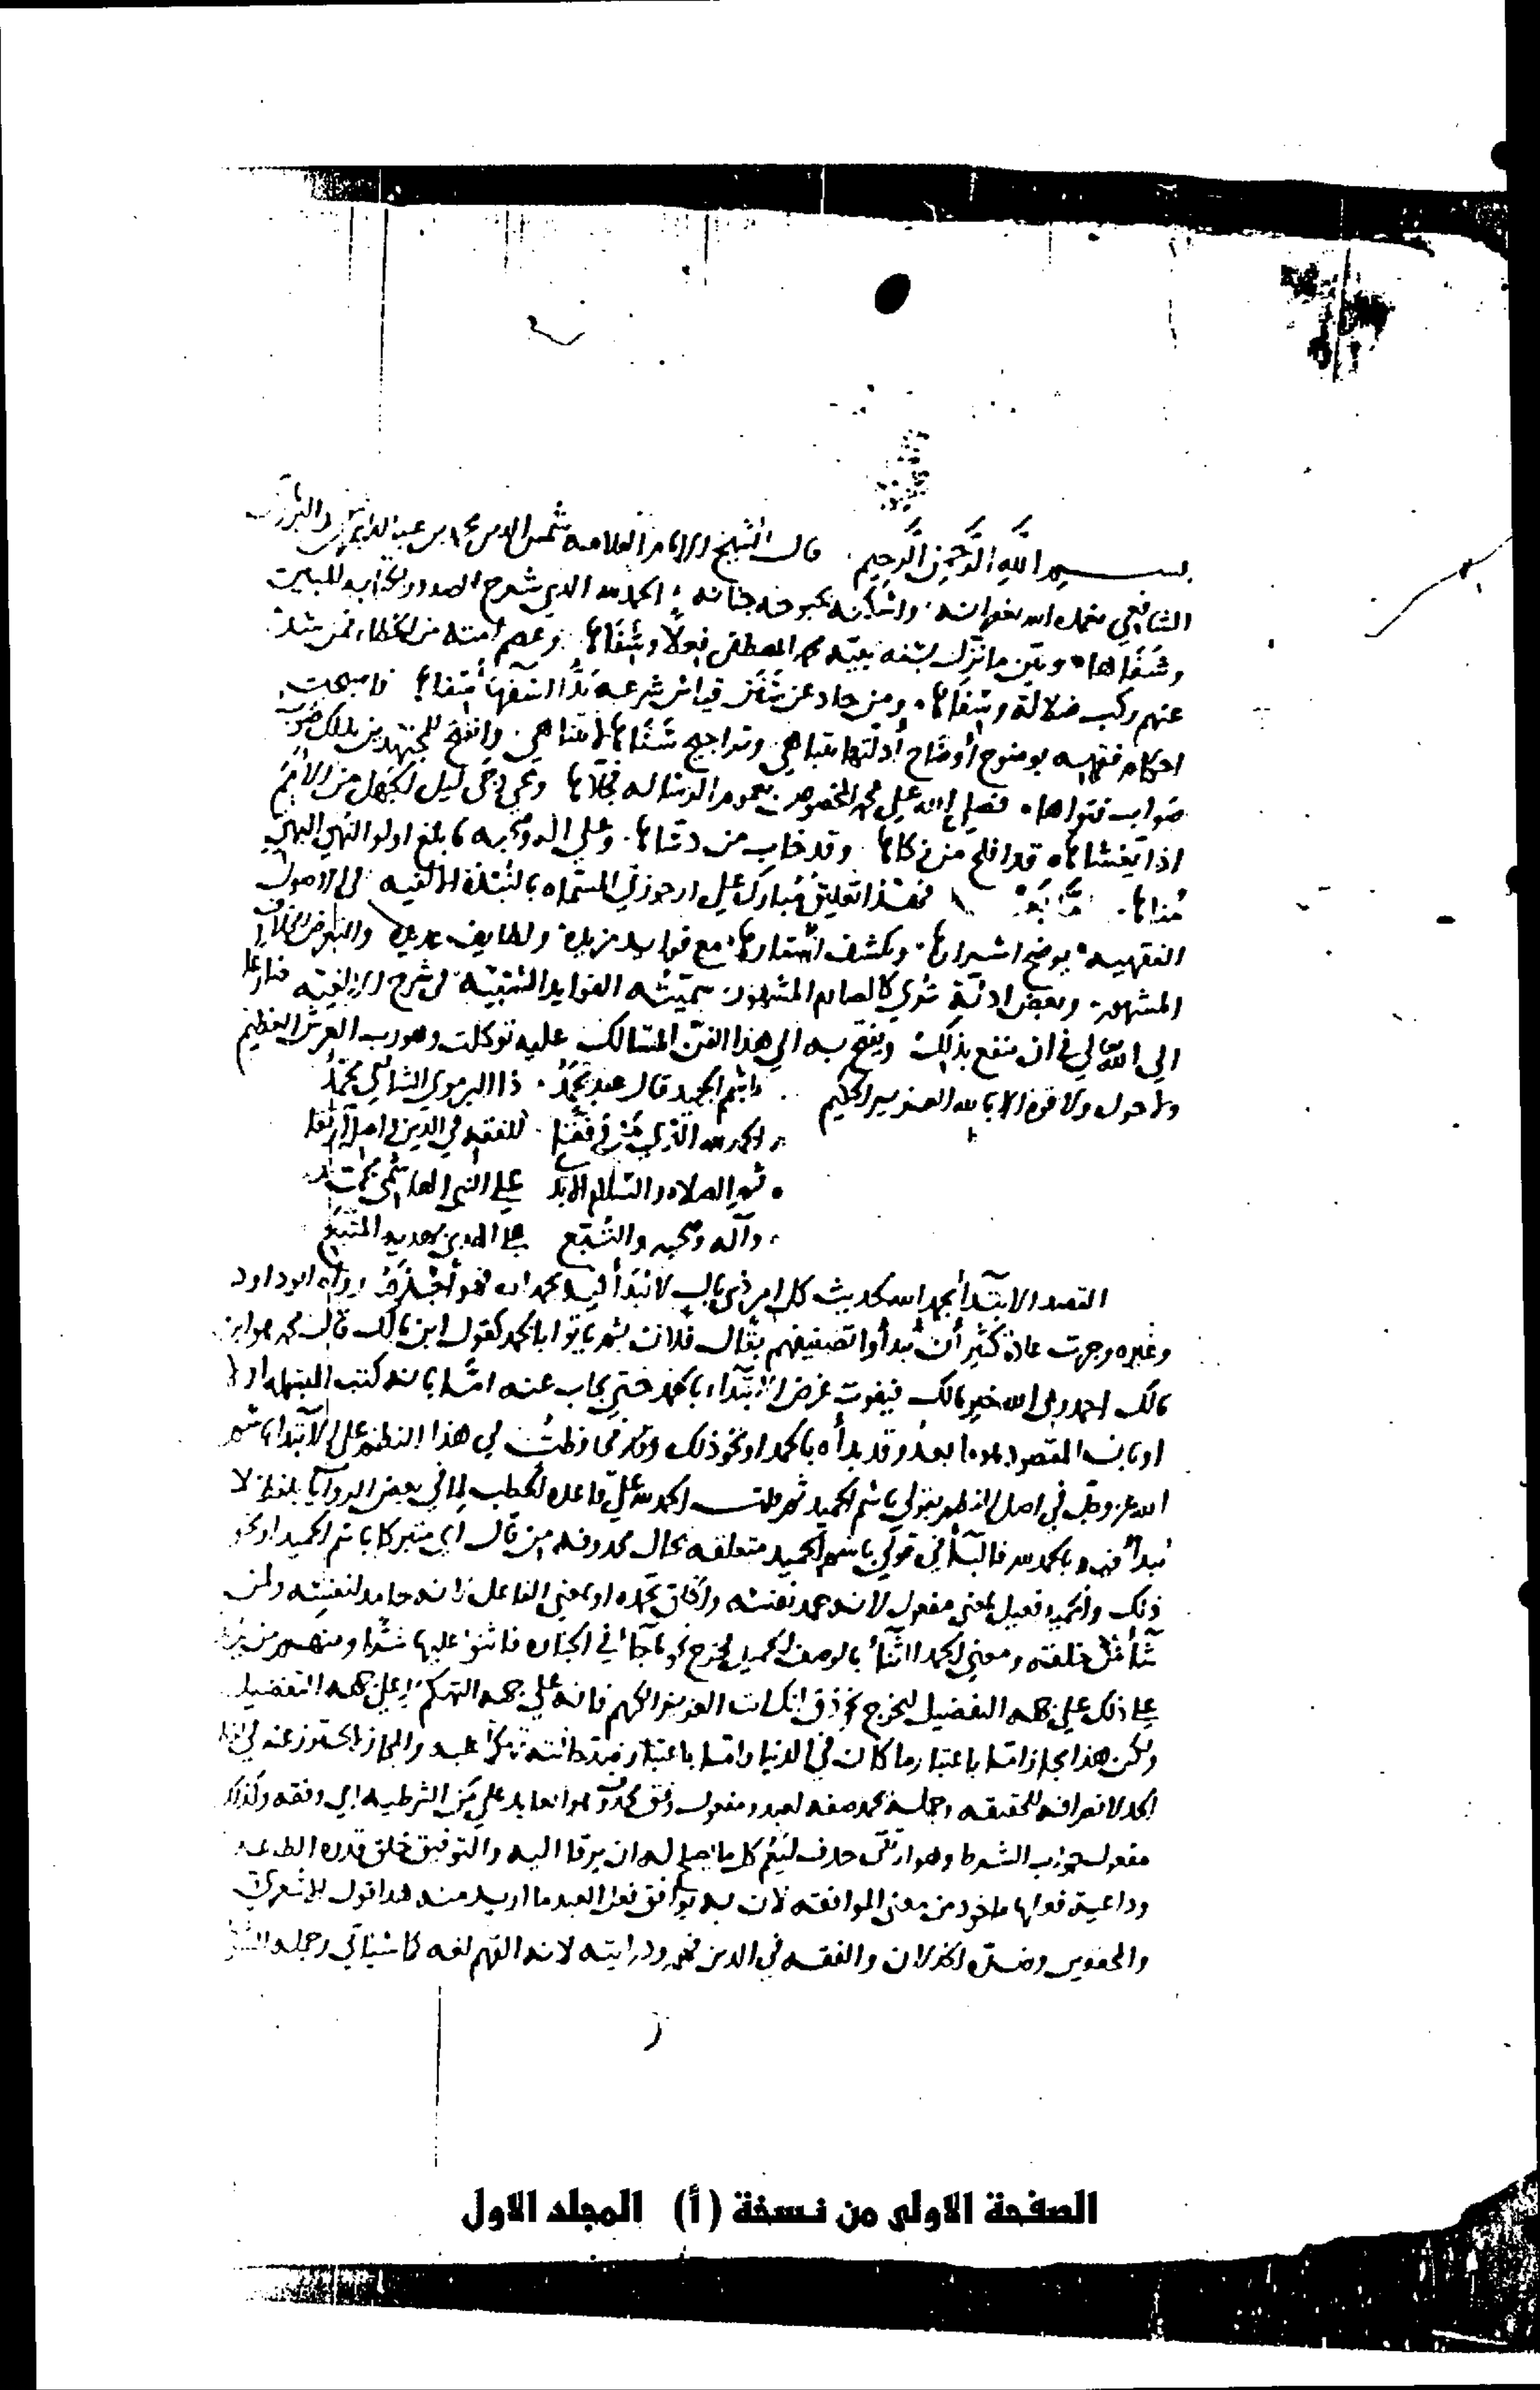 بسم الله الرحمن الرحيم . قال الشيخ الامام العلامة شمس الدين محمد بن عبد الدايم
الشافعي تغمده الله بغفرانه . واسكنه بحبوحة جنانه : الحمد لله الذي شرح الصدور بكتابه المبين
وشفاها . وبين ما نزل بسنة نبيه محمد المصطفى فعلا وشفاها . وعصم امته من الخطاء فمن شذ
عنهم ركب ضلالة وشفاها . ومن حاد عن قياس شرعه
احكام فقهه بوضوح أوضاح أدلتها تتباهى . وتراجيح لا تتناهى . واتضح للمجتهدين بذلك صوب
صواب فتواها . فصلى الله على محمد المخصوص بعموم الرسالة فجلاها ومحى دجى ليل الجهل من الأمم
اذا يغشاها . قد افلح من زكاها . وقد خاب من دساها . وعلى اله وصحبه ما بلغ اولوا النهى
مناها . فهذا تعليق مبارك على ارجوزتي المسماه بالنبذة الالفيه في الاصول
الفقهيه . يوضح اسرارها . ويكشف استارها . مع فوايد مزيدة . ولطايف عديدة
المشهور . وبعض ادلة سميته الفوايد السنية في شرح الالفية
الى الله في ان ينفع بذلك ويفتح به الى هذا الفن المسالك عليه توكلت وهو رب العرش العظيم
ولا حول ولا قوة الا بالله العزيز الحكيم . باسم الحميد قال عبد يحمد . ذا البرموي الشافعي محمد
الحمد لله الذي من وفقا . للفقه في الدين
. ثم الصلاه والسلام الابدي على النبي الهاشمي محمد
. وآله وصحبه والتبع على الهدى
القصد الابتدأ بحمد الله لحديث كل امر ذي بال لا يبدأ فيه بحمد الله فهو أجذم رواه ابو داود
وغيره وجرت عادة كثير أن يبدأوا تصنيفهم بقال فلان ثم ياتوا بالحمد كقول ابن مالك قال محمد هو ابن
مالك احمد ربي الله خير مالك فيفوت غرض الابتداء بالحمد حتى يجاب عنه اما بانه كتب البسمله اولا
او بان المقصود هو ما بعد وقد بدأه بالحمد او نحو ذلك وقد حافظت في هذا النظم على الابتدا باسم
الله عز وجل في اصل النظم بقولي باسم الحميد ثم قلت الحمد لله على قاعدة الخطب لما في بعض الروايات بلفظ لا
يبدأ فيه بالحمد لله فالبأ في قولي باسم الحميد متعلقه بحال محذوفه من قال اي متبركا باسم الحميد او نحو
ذلك والحميد فعيل بمعنى مفعول لانه حمد نفسه والخلق تحمده او بمعنى الفاعل لانه حامد لنفسه ولمن
شأ من خلقه ومعنى الحمد الثنأ بالوصف الجميل ليخرج نحو ما جأ في الجنازه فاثنوا عليها شرا ومنهم من يزيد
على ذلك على جهة التفضيل ليخرج نحو ذق انك انت العزيز الكريم فانه على جهة التهكم لا على جهة التفضيل
ولكن هذا مجاز اما باعتبار ما كان في الدنيا واما باعتبار والمجاز يحترز عنه في
الحد لانصرافه للحقيقه وجملة يحمد صفه لعبد ومفعول وفق محذوف هو العايد على من الشرطيه اي وفقه وكذلك
مفعول جواب الشرط وهو ارتقى حذف ليعم كل ما يصلح له ان يرقا اليه والتوفيق خلق قدرة الطاعه
وداعية فعلها ماخوذ من معنى الموافقه لان به يوافق فعل العبد ما اريد منه هذا قول الاشعري
والمحققين وضده الخذلان والفقه في الدين فهمه ودرايته لانه الفهم لغه كما سياتي وجملة
الصفحة الاولى من نسخة (أ) المجلد الاول